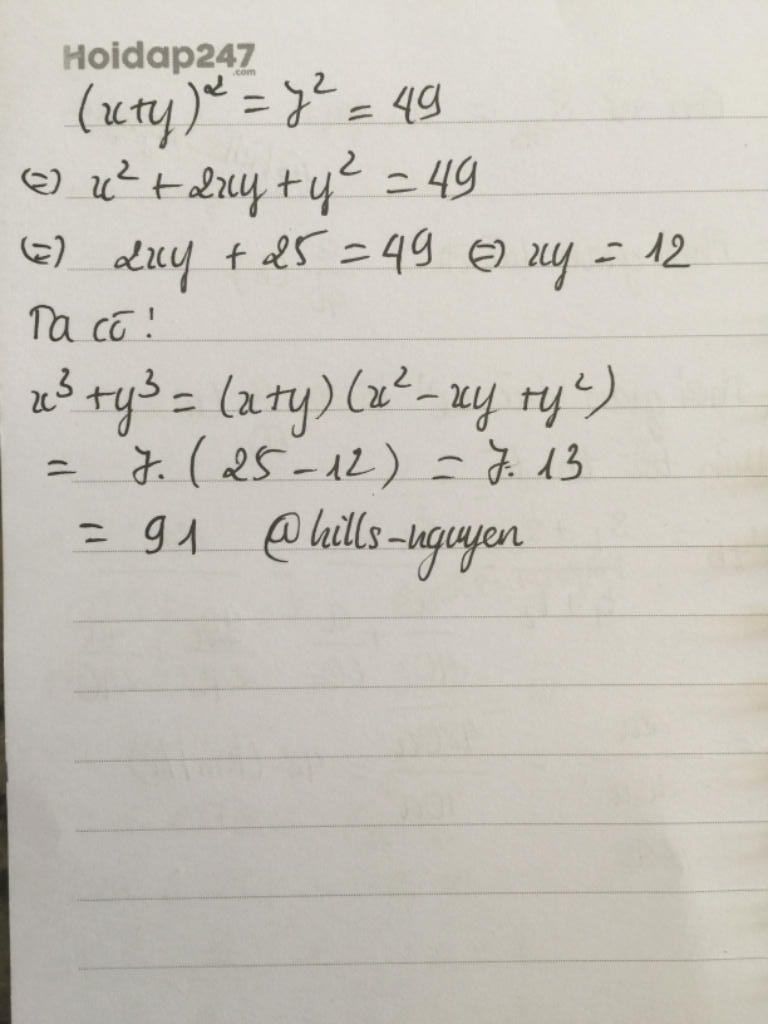 Hoidap247
.com
(x+y)² = 7² = 49
(=) x² + 2xy + y² = 49
(=) 2xy + 25 = 49 (=) xy = 12
Ta có:
x³ + y³ = (x+y)(x² - xy + y²)
= 7. (25 - 12) = 7. 13
= 91 @hills-nguyen